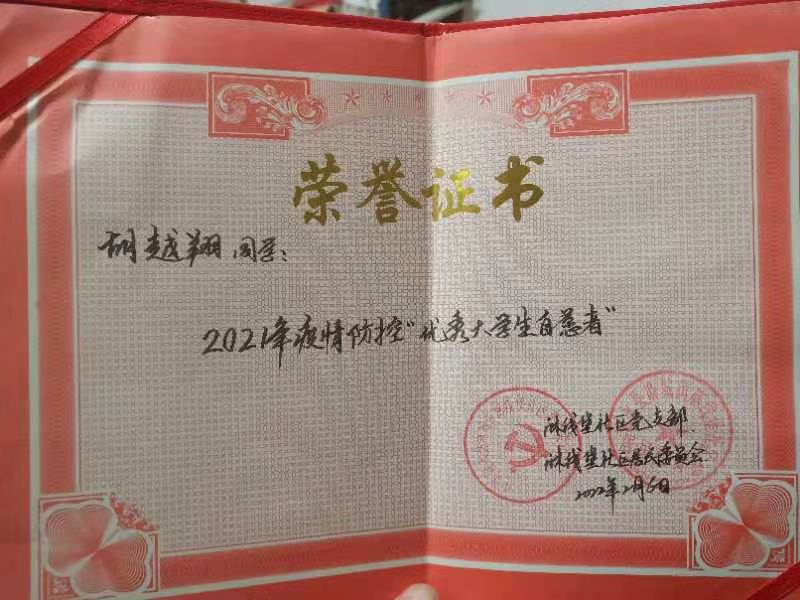 荣誉证书
胡越翔 同学：
2021年疫情防控“优秀大学生自愿者”
社区党支部
社区居民委员会
2022年2月6日